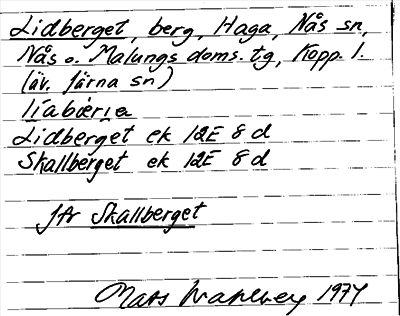 Lidberget, berg, Haga, Nås sn,
Nås o. Malungs doms. tg, Kopp. l.
(äv. Järna sn)
Lidberget ek 12E 8d
Skallberget ek 12E 8d
Jfr Skallberget
Mats Wahlberg 1974